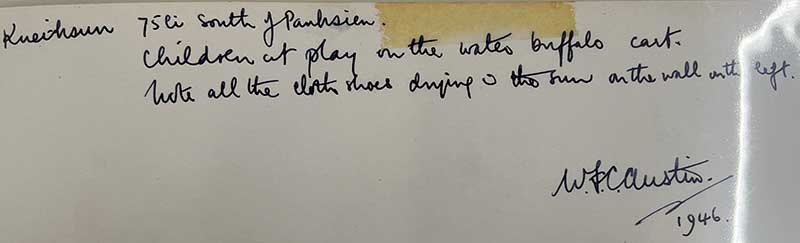 Kueichsun 75li South of Panhsien.
Children at play on the water buffalo cart.
Note all the cloth shoes drying in the sun on the wall on the left.
W.F.C. Austin.
1946.